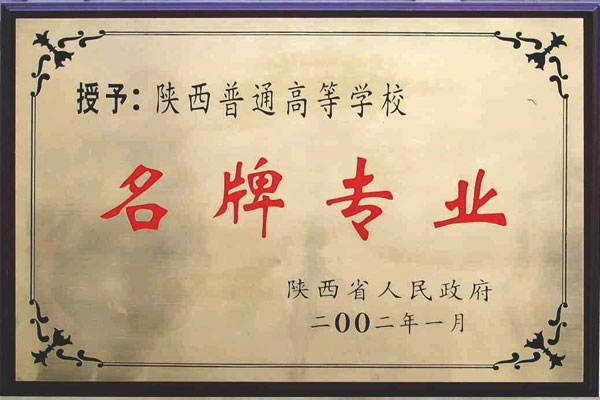 授予：陕西普通高等学校
名牌专业
陕西省人民政府
二00二年一月